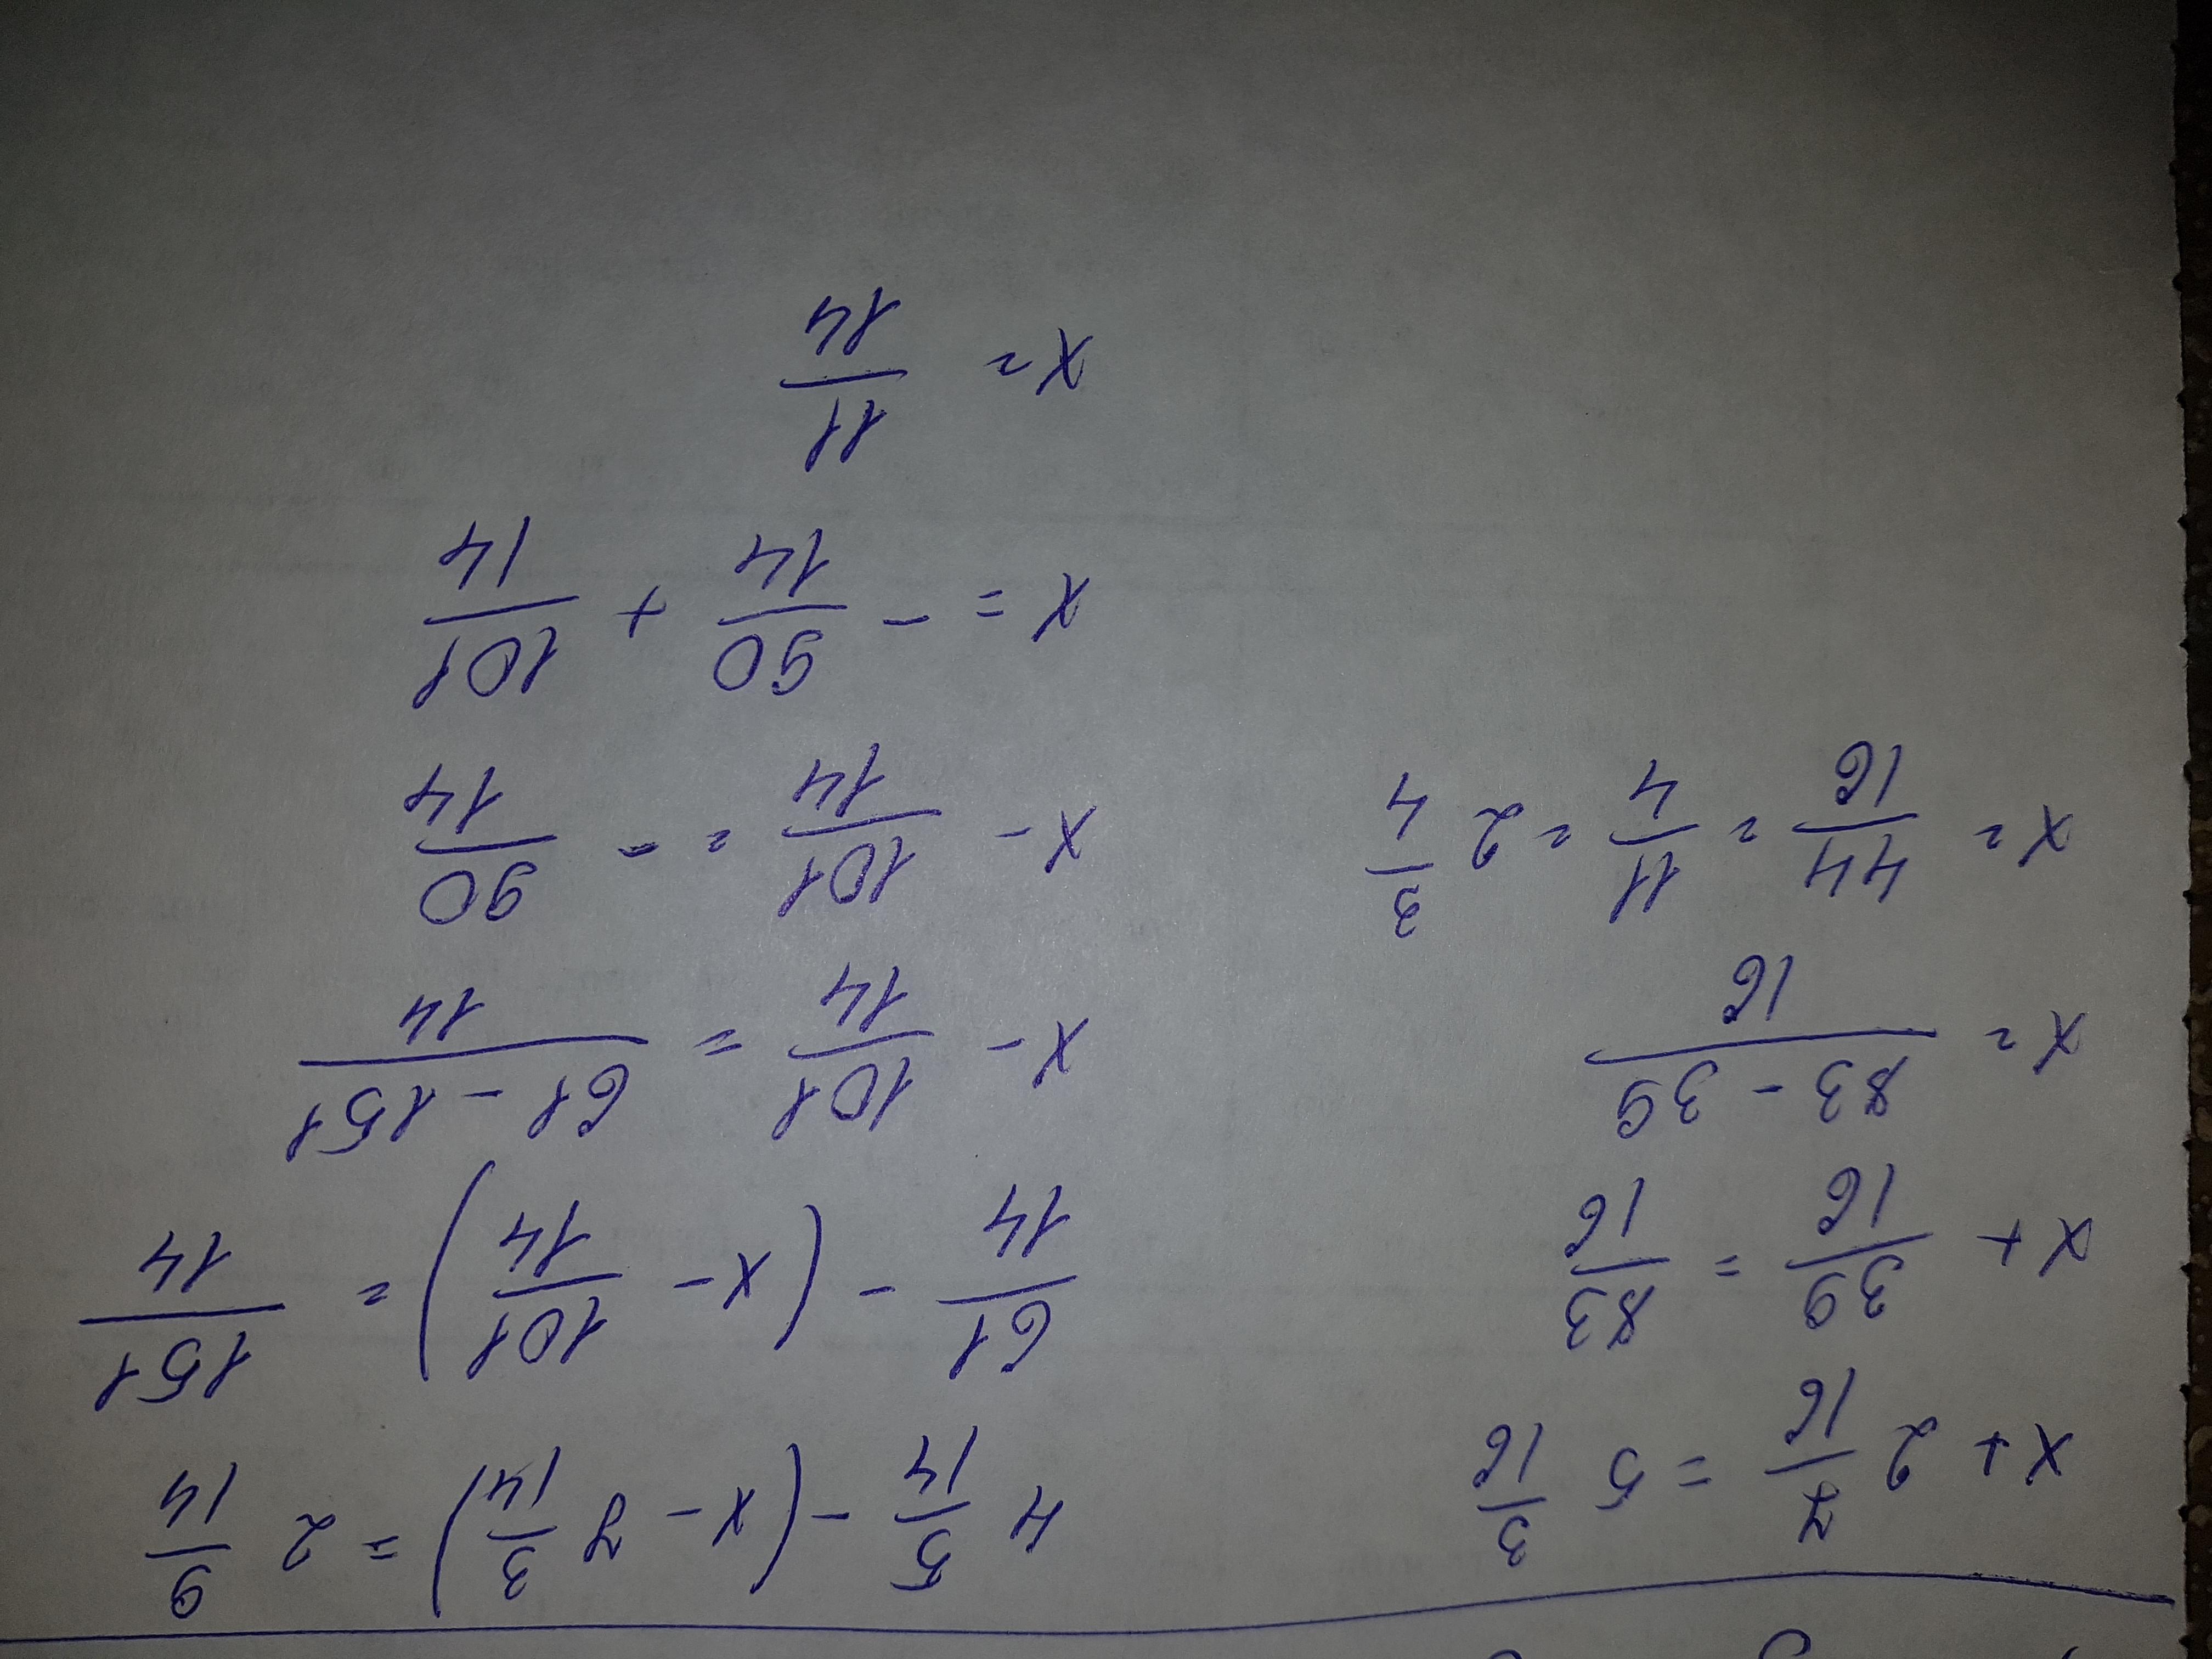 x + 2 7/16 = 5 3/16
x + 39/16 = 83/16
x = (83 - 39)/16
x = 44/16 = 11/4 = 2 3/4
4 5/14 - (x - 7 3/14) = 2 9/14
61/14 - (x - 101/14) = 151/14
x - 101/14 = (61 - 151)/14
x - 101/14 = - 90/14
x = - 90/14 + 101/14
x = 11/14